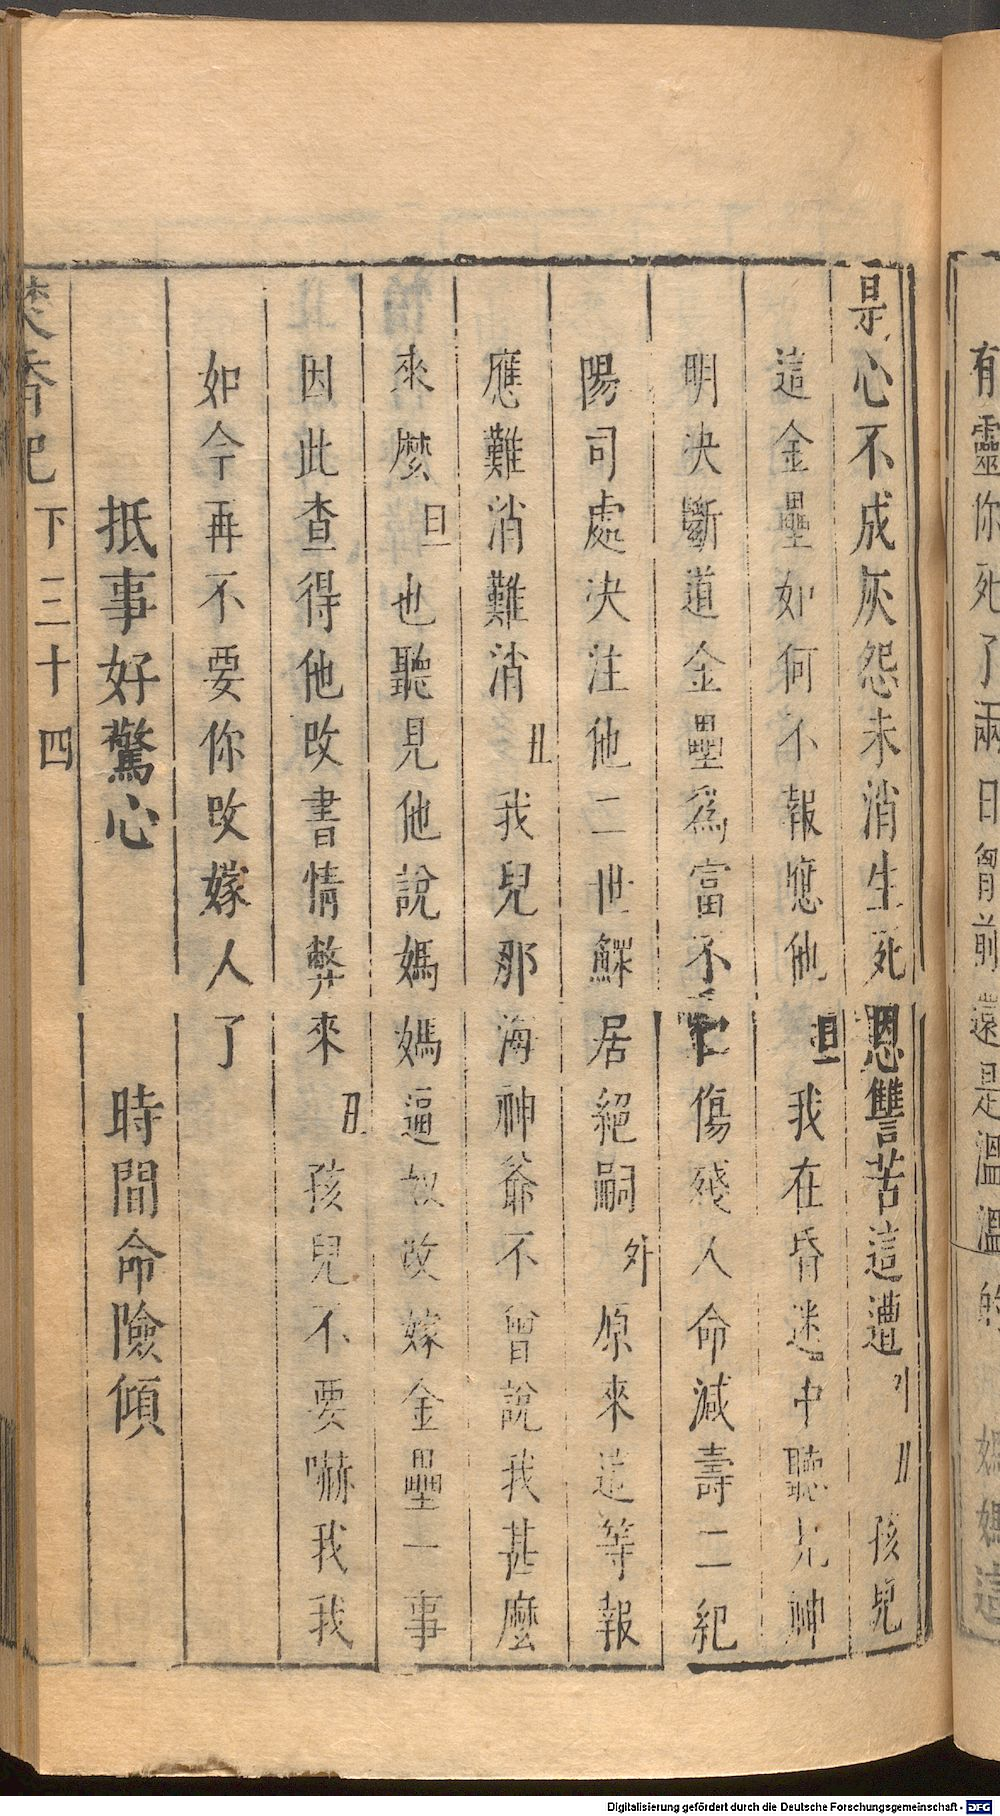 有靈你死了兩日胷前還是溫溫的 媽媽這
是心不成灰怨未消生死恩讐苦這遭 丑 孩兒
這金壘如何不報應他 旦 我在昏迷中聽見神
明決斷道金壘為富不仁傷殘人命減壽二紀
陽司處決注他二世鰥居絕嗣 外 原來這等報
應難消難消 丑 我兒那海神爺不曾說我甚麼
來麼 旦 也聽見他說媽媽逼奴改嫁金壘一事
因此查得他改書情弊來 丑 孩兒不要嚇我我
如今再不要你改嫁人了
抵事好驚心 時間命險傾
焚香記 下 三十四
Digitalisierung gefördert durch die Deutsche Forschungsgemeinschaft - DFG